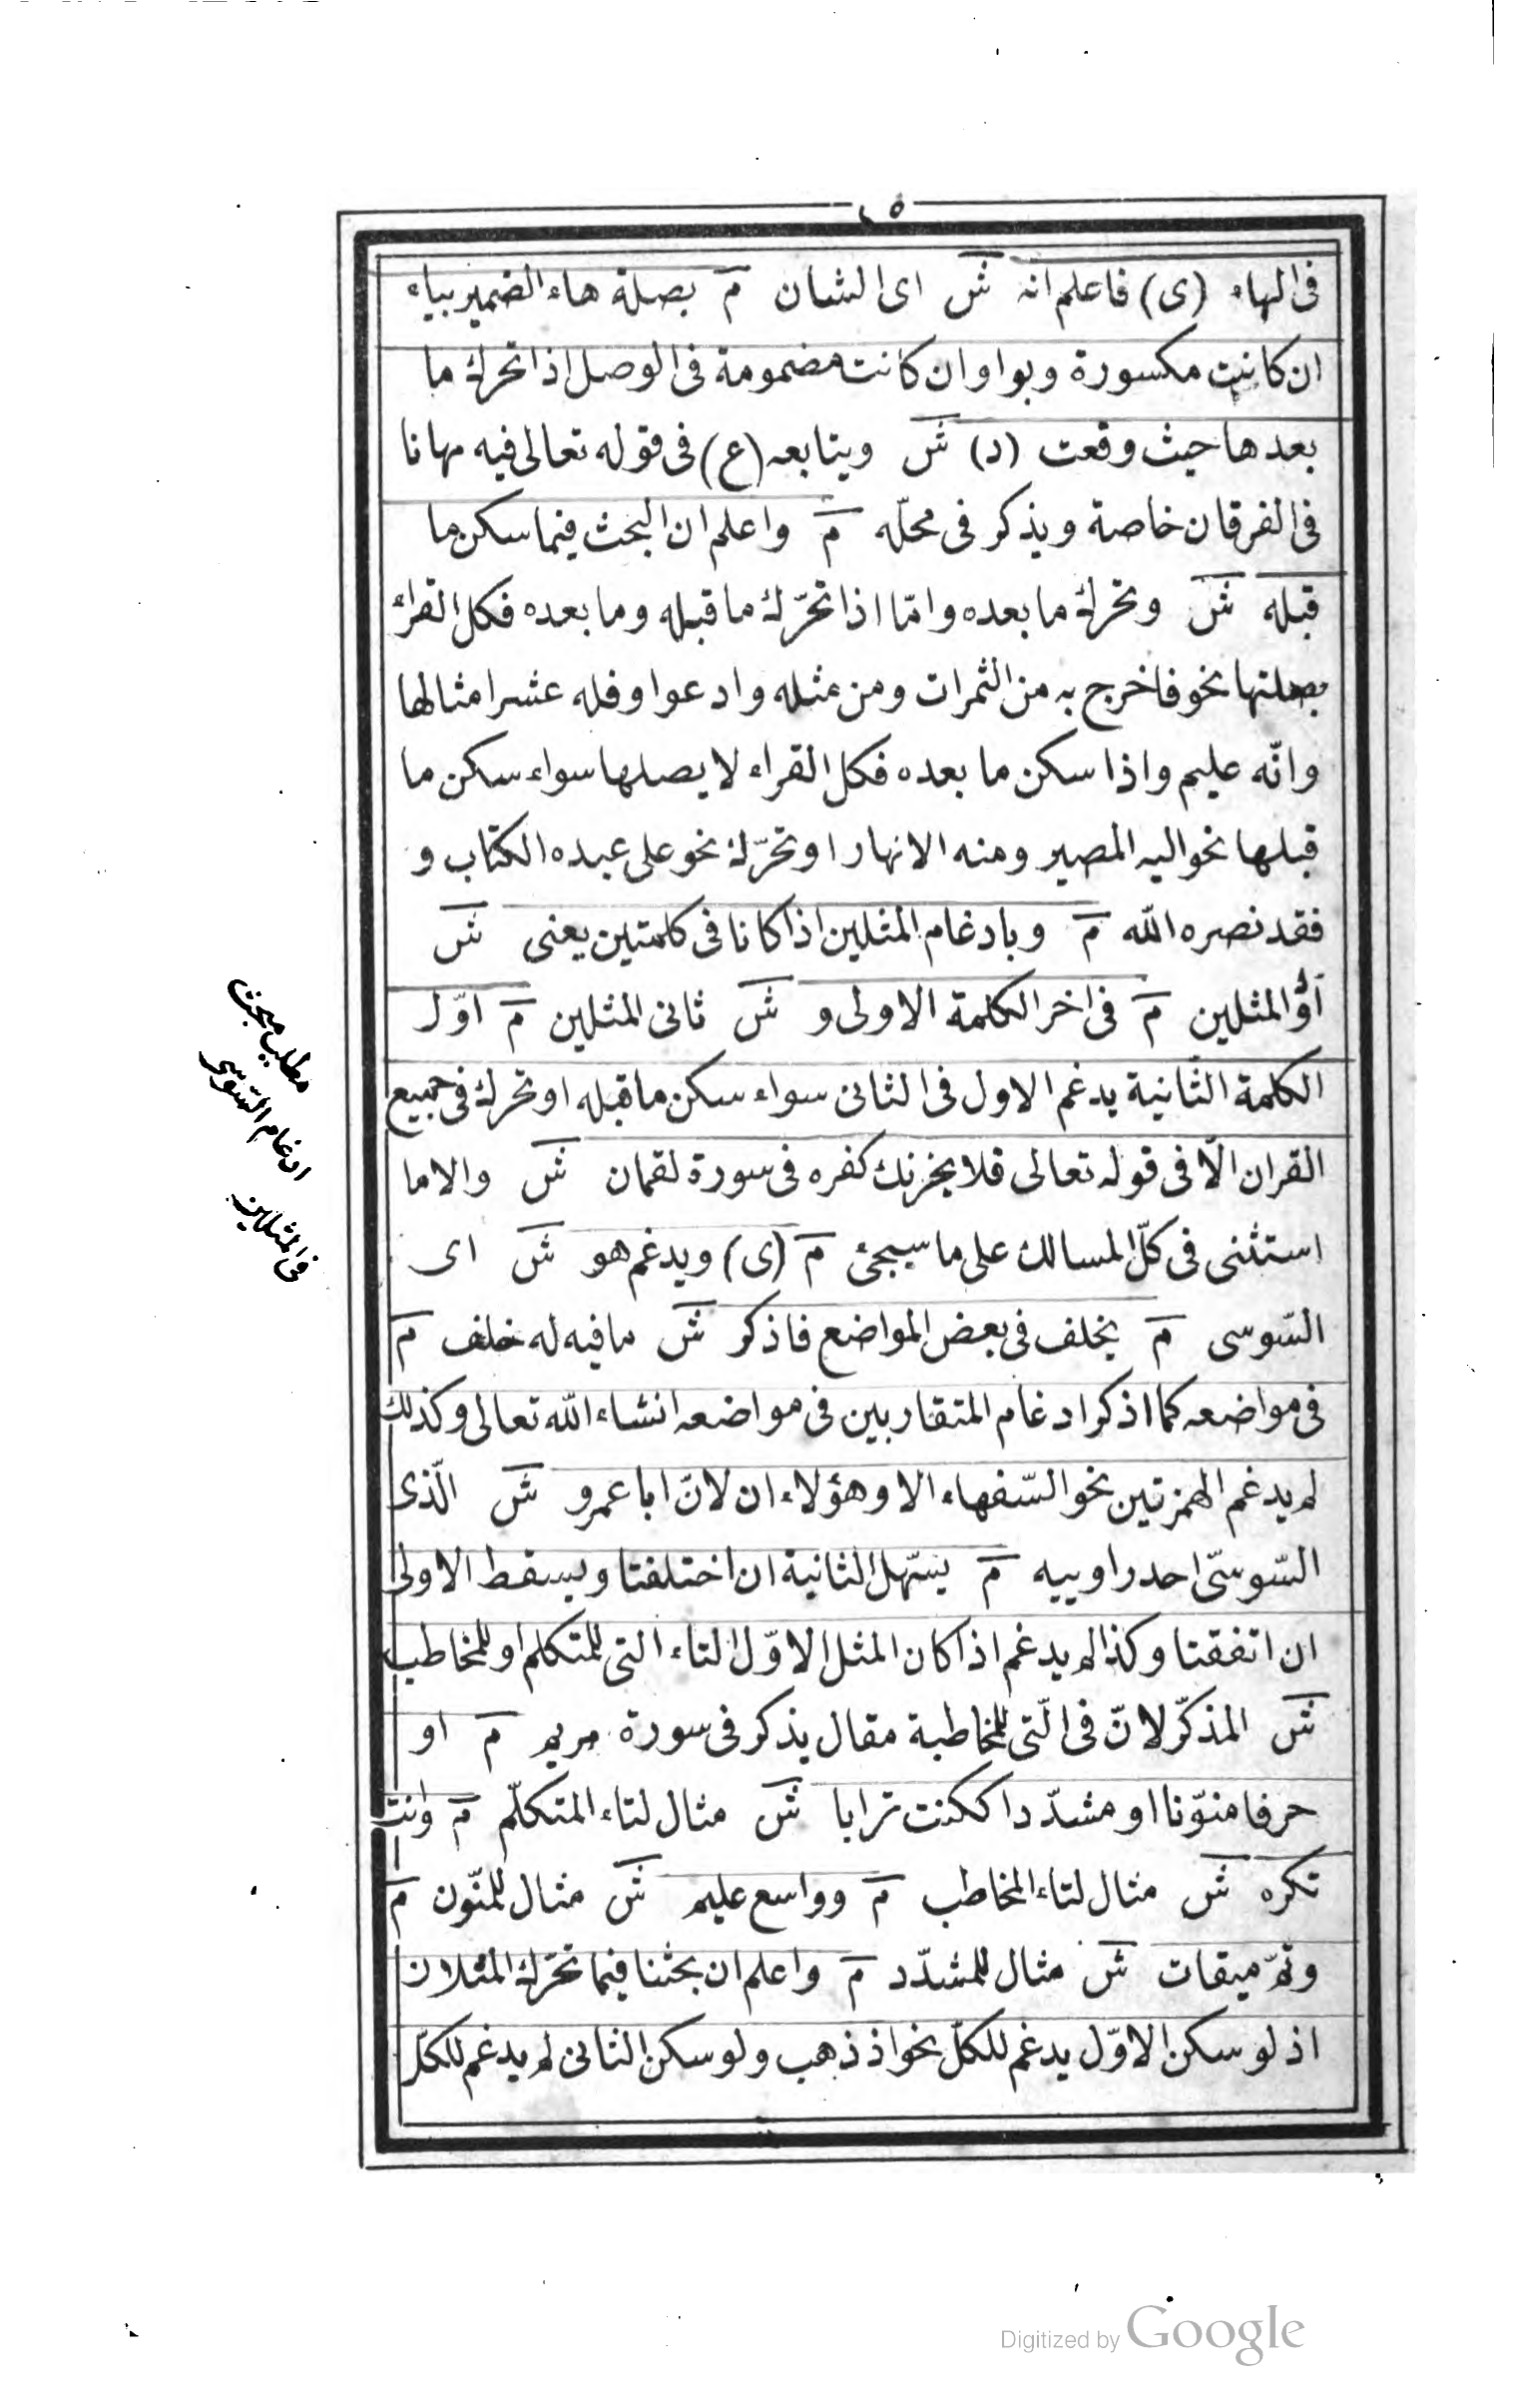 ٤٥
فى الهاء (ى) فاعلم انه ش اى الشان م بصلة هاء الضمير بياء
ان كانت مكسورة وبواو ان كانت مضمومة فى الوصل اذا تحرك ما
بعدها حيث وقعت (د) ش ويتابعه (ع) فى قوله تعالى فيه مهانا
فى الفرقان خاصة ويذكر فى محلّه م واعلم ان البحث فيما سكن ما
قبله ش وتحرك ما بعده وامّا اذا تحرّك ما قبله وما بعده فكل القراء
بصلتها نحو فاخرج به من الثمرات ومن مثله وادعوا وفله عشر امثالها
وانّه عليم واذا سكن ما بعده فكل القراء لا يصلها سواء سكن ما
قبلها نحو اليه المصير ومنه الانهار او تحرّك نحو على عبده الكتاب و
فقد نصره الله م وبادغام المثلين اذا كانا فى كلمتين يعنى ش
المثلين م فى اخر الكلمة الاولى و ش ثانى المثلين م اوّل
الكلمة الثانية يدغم الاول فى الثانى سواء سكن ما قبله او تحرك فى جميع
القران الّا فى قوله تعالى فلا يحزنك كفره فى سورة لقمان ش والا ما
استثنى فى كلّ المسالك على ما سيجئ م (ى) ويدغم هو ش اى
السّوسى م بخلف فى بعض المواضع فاذكر ش ما فيه له خلف م
فى مواضعه كما اذكر ادغام المتقاربين فى مواضعه انشاء الله تعالى وكذلك
لم يدغم الهمزتين نحو السّفهاء الا وهؤلاء ان لانّ ابا عمرو ش الّذى
السّوسىّ احد راوييه م يسّهل الثانية ان اختلفتا ويسقط الاولى
ان اتفقتا وكذا لم يدغم اذا كان المثل الاوّل التاء التى للمتكلم او للمخاطب
ش المذكّر لانّ فى الّتى للمخاطبة مقال يذكر فى سورة مريم م او
حرفا منوّنا او مشدّدا ككنت ترابا ش مثال لتاء المتكلّم م وانت
تكره ش مثال لتاء المخاطب م وواسع عليم ش مثال للمنّون م
وتمّ ميقات ش مثال للمشدّد م واعلم ان بحثنا فيما تحرّك المثلان
اذ لو سكن الاوّل يدغم للكلّ نحو اذ ذهب ولو سكن الثانى لم يدغم للكلّ
مطلب مبحث
ادغام السّوسى
فى المثلين
Digitized by Google